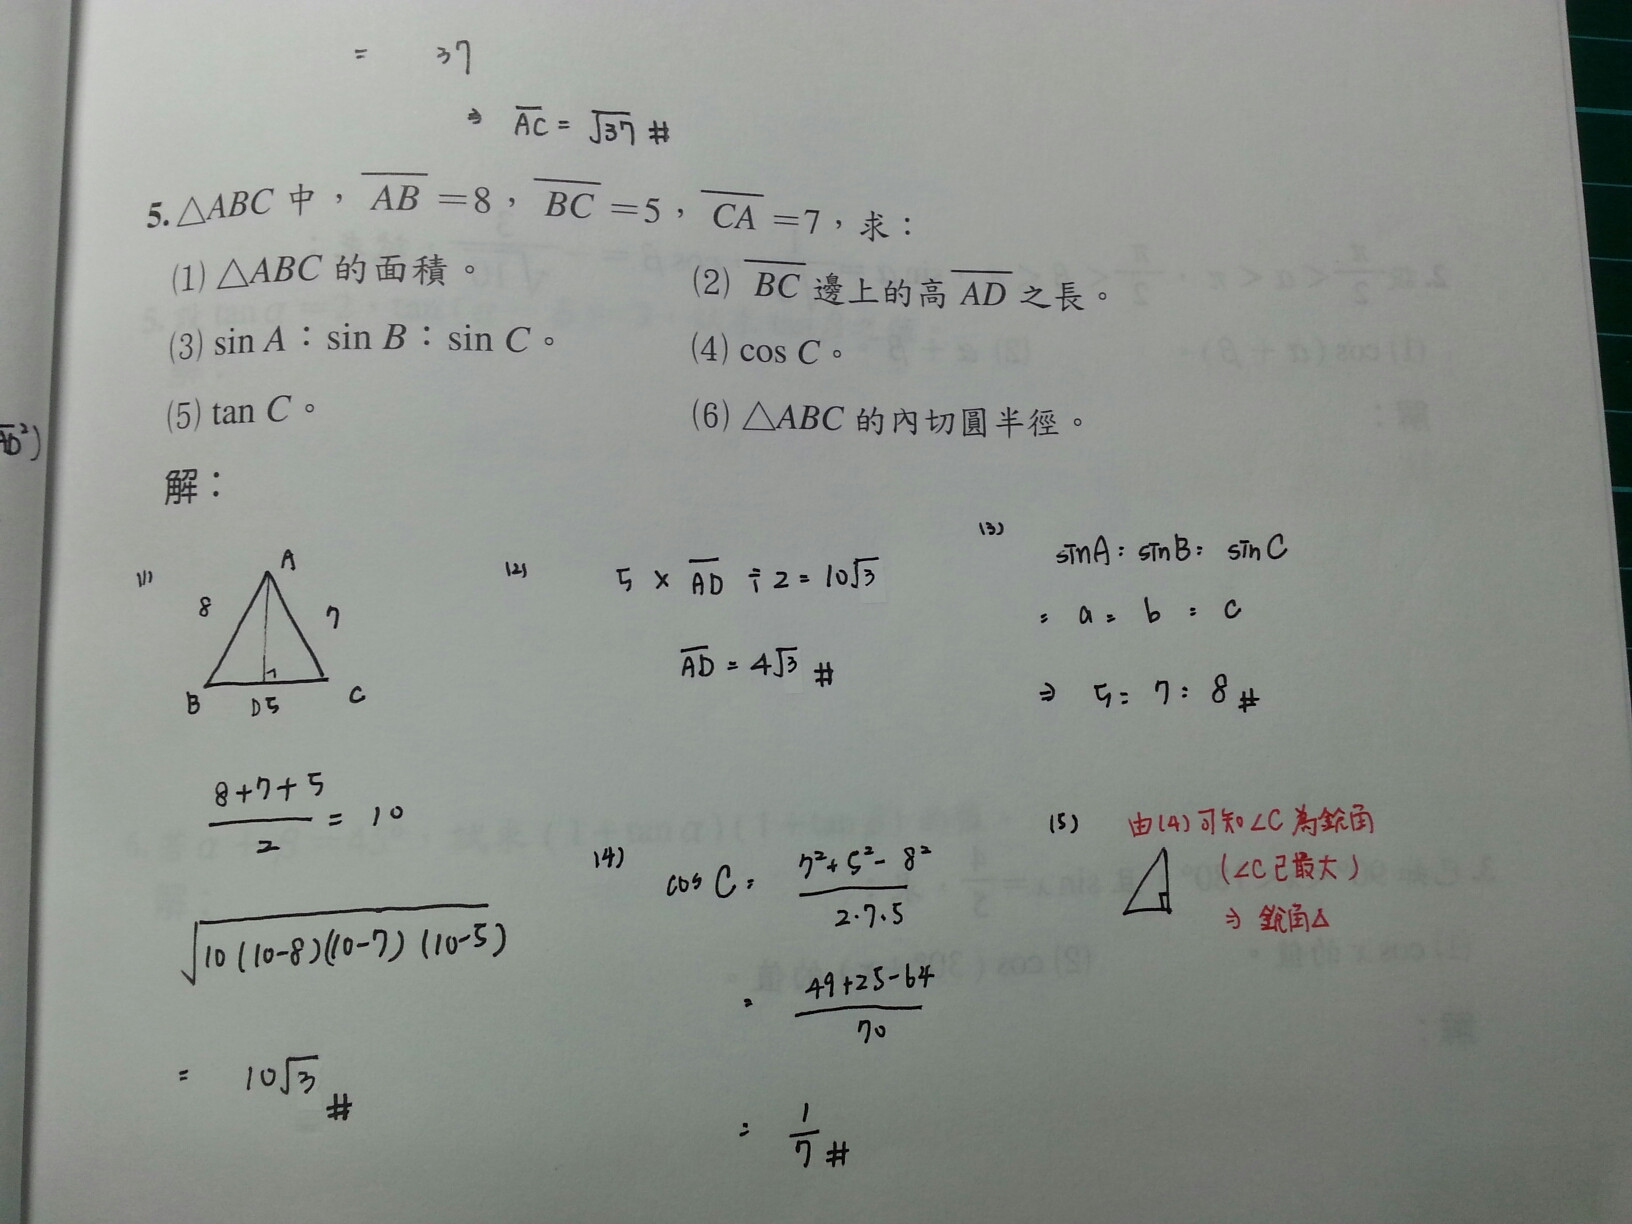 = 37
⇒ AC = √37 #
5. △ABC 中，AB＝8，BC＝5，CA＝7，求：
(1) △ABC 的面積。 (2) BC 邊上的高 AD 之長。
(3) sin A：sin B：sin C。 (4) cos C。
(5) tan C。 (6) △ABC 的內切圓半徑。
AD²)
解：
(1)
A
8 7
B D 5 C
(8+7+5)/2 = 10
√10(10-8)(10-7)(10-5)
= 10√3 #
(2) 5 × AD ÷ 2 = 10√3
AD = 4√3 #
(3) sinA : sinB : sinC
= a : b : c
⇒ 5 : 7 : 8 #
(4) cos C = (7²+5²-8²)/(2·7·5)
= (49+25-64)/70
= 1/7 #
(5) 由(4)可知∠C為銳角
(∠C已最大)
⇒ 銳角△